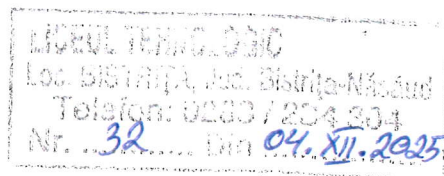 LICEUL TEHNOLOGIC
Loc. BISTRIȚA, Jud. Bistrița-Năsăud
Telefon: /
Nr. 32 Din 04. XII. 2025